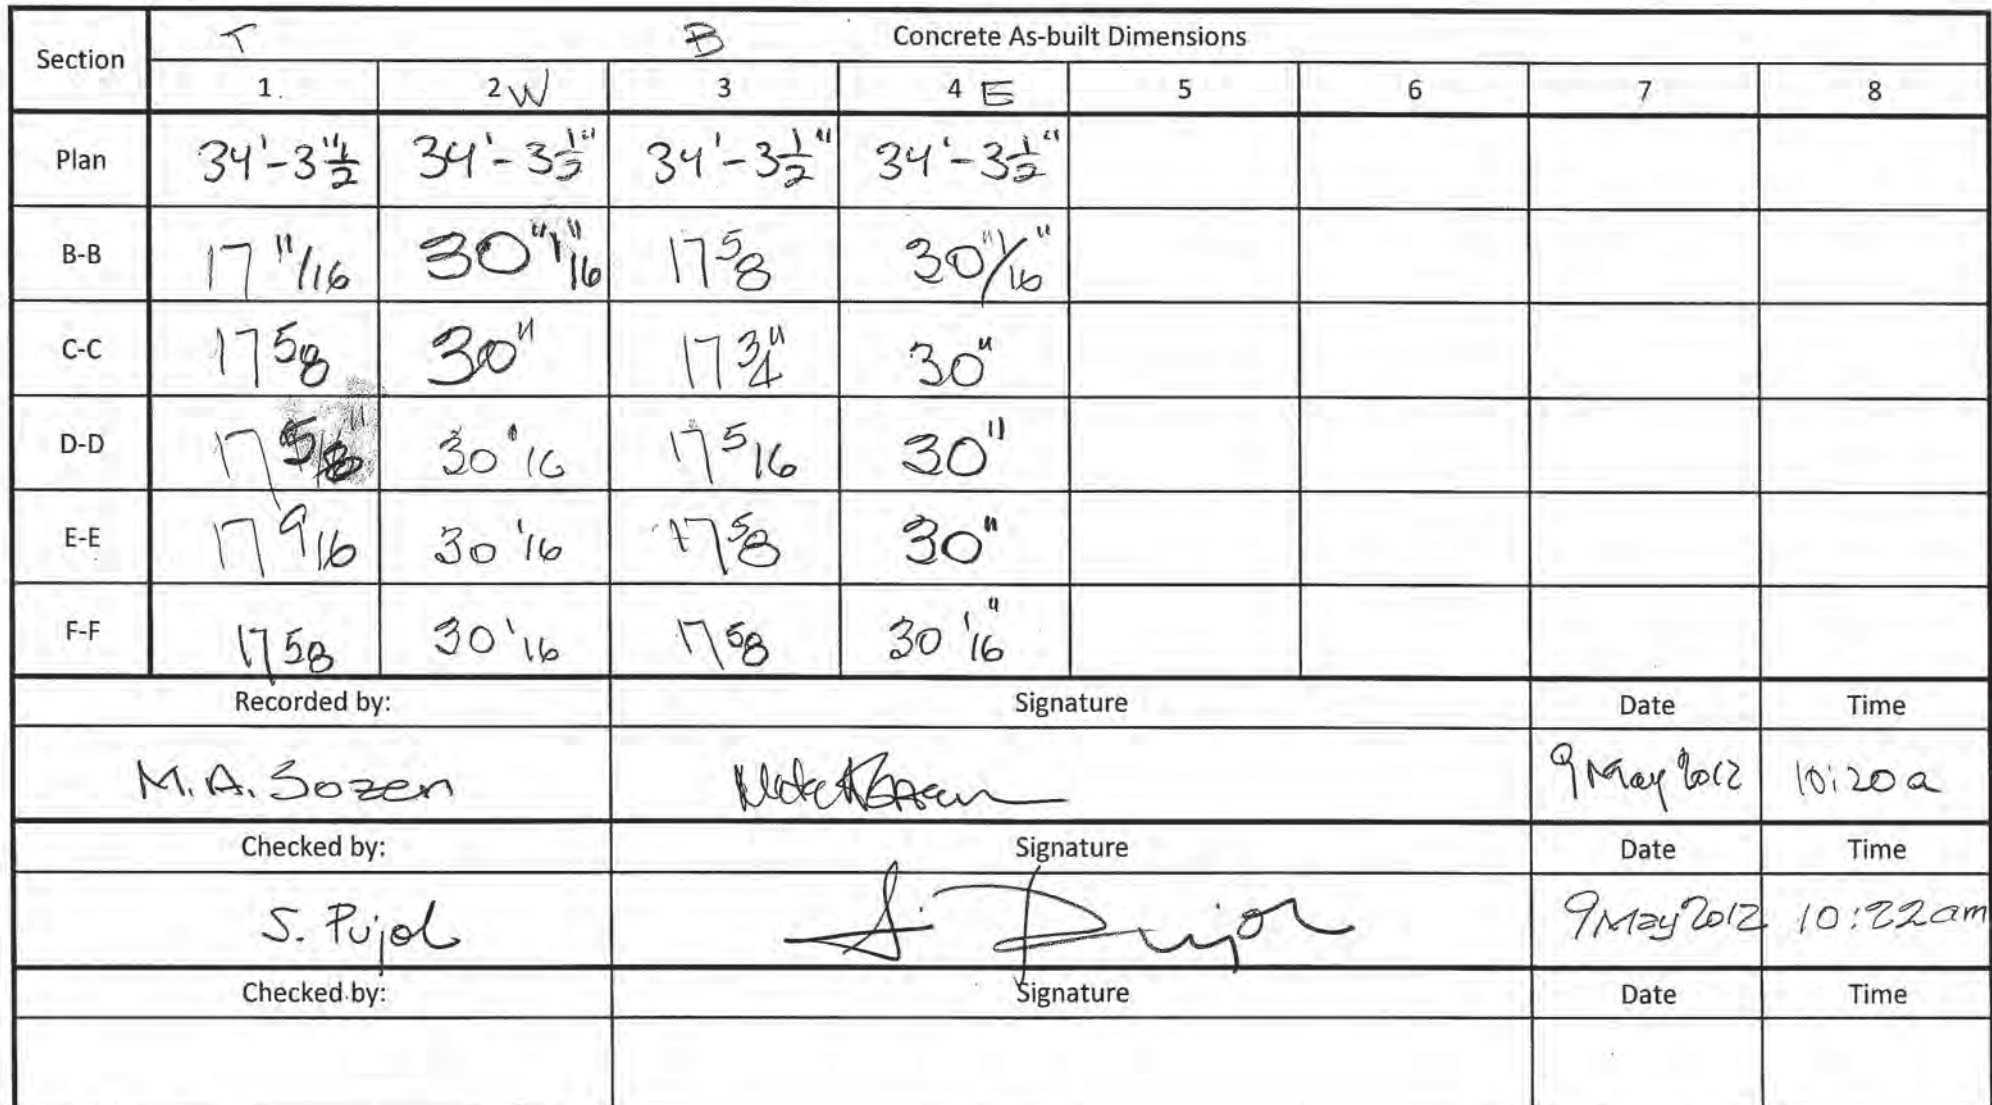 T B
Section Concrete As-built Dimensions
1. 2 W 3 4 E 5 6 7 8
Plan 34'-3"1/2 34'-3 1/2" 34'-3 1/2" 34'-3 1/2"
B-B 17 11/16 30" 1/16" 17 5/8 30" 1/16"
C-C 17 5/8 30" 17 3/4" 30"
D-D 17 30 1/16 17 5/16 30"
E-E 17 9/16 30 1/16 17 5/8 30"
F-F 17 5/8 30 1/16 17 5/8 30 1/16"
Recorded by: Signature Date Time
M.A. Sozen 9 May 2012 10:20 a
Checked by: Signature Date Time
S. Pujol S. Pujol 9 May 2012 10:22am
Checked by: Signature Date Time